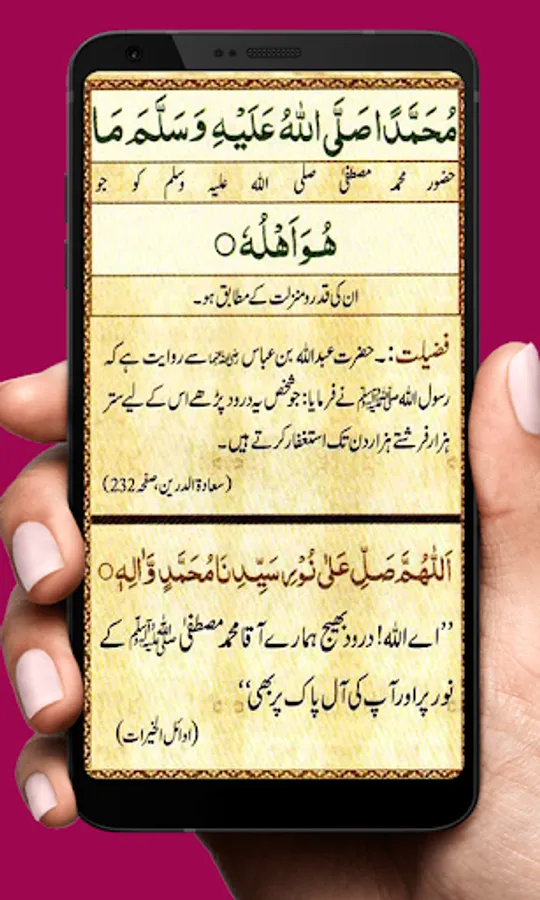 مُحَمَّدًا صَلَّى اللهُ عَلَيْهِ وَسَلَّمَ مَا
حضور محمد مصطفیٰ صلی اللہ علیہ وسلم کو جو
هُوَ اَهْلُهٗ ○
ان کی قدر و منزلت کے مطابق ہو۔
فضیلت:۔ حضرت عبداللہ بن عباس رضی اللہ عنہما سے روایت ہے کہ
رسول اللہ ﷺ نے فرمایا: جو شخص یہ درود پڑھے اس کے لیے ستر
ہزار فرشتے ہزار دن تک استغفار کرتے ہیں۔
(سعادۃ الدرین، صفحہ 232)
اَللّٰهُمَّ صَلِّ عَلٰى نُوْرِ سَيِّدِنَا مُحَمَّدٍ وَّاٰلِهٖ ○
”اے اللہ! درود بھیج ہمارے آقا محمد مصطفیٰ ﷺ کے
نور پر اور آپ کی آل پاک پر بھی“
(اوائل الخیرات)